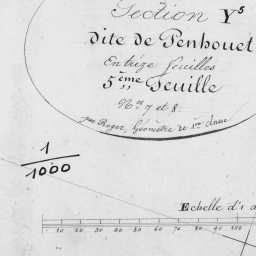 Section Y⁵
dite de Penhouet
En treize feuilles
5ème feuille
Nos 7 et 8
par Roger, Géomètre de 1re classe
1/1000
Echelle d'1 a
10 20 30 40 50 60 70 80 90 100